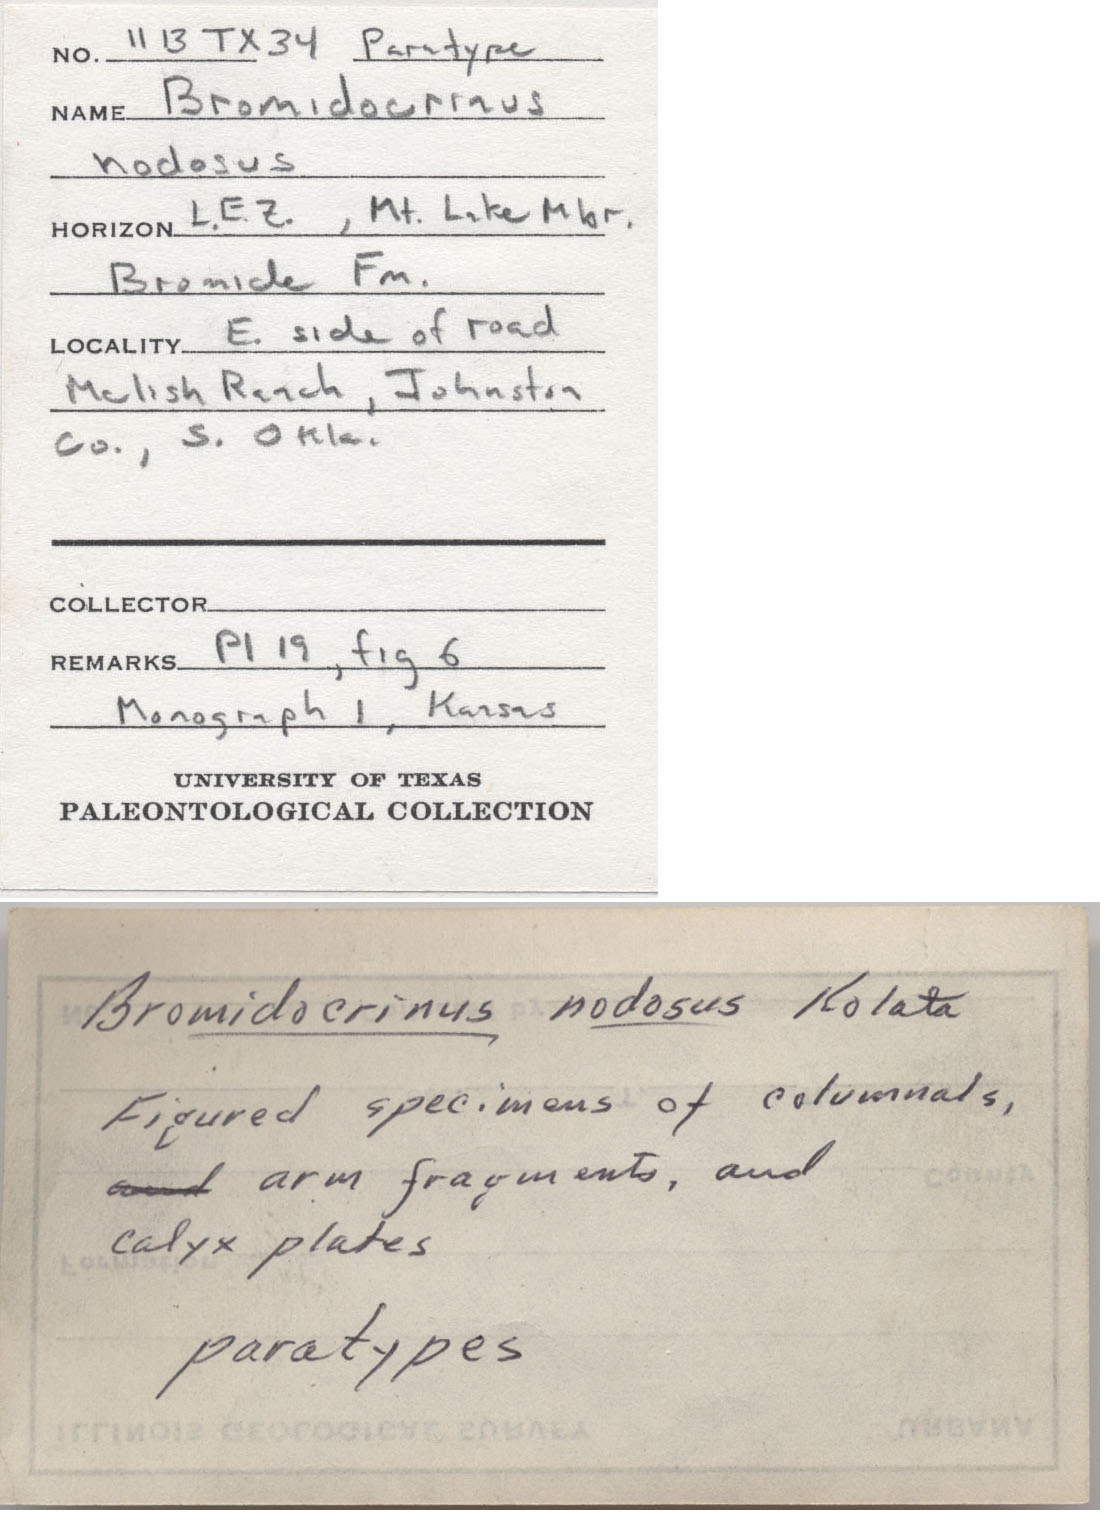 NO. 1113 TX 34 Paratype
NAME Bromidocrinus
nodosus
HORIZON L.E.Z. , Mt. Lake Mbr.
Bromide Fm.
LOCALITY E. side of road
Mclish Ranch, Johnston
Co., S. Okla.
COLLECTOR
REMARKS Pl 19, fig 6
Monograph 1, Kansas
UNIVERSITY OF TEXAS
PALEONTOLOGICAL COLLECTION
Bromidocrinus nodosus Kolata
Figured specimens of columnals,
and arm fragments, and
calyx plates
paratypes
County
Formation
ILLINOIS GEOLOGICAL SURVEY URBANA